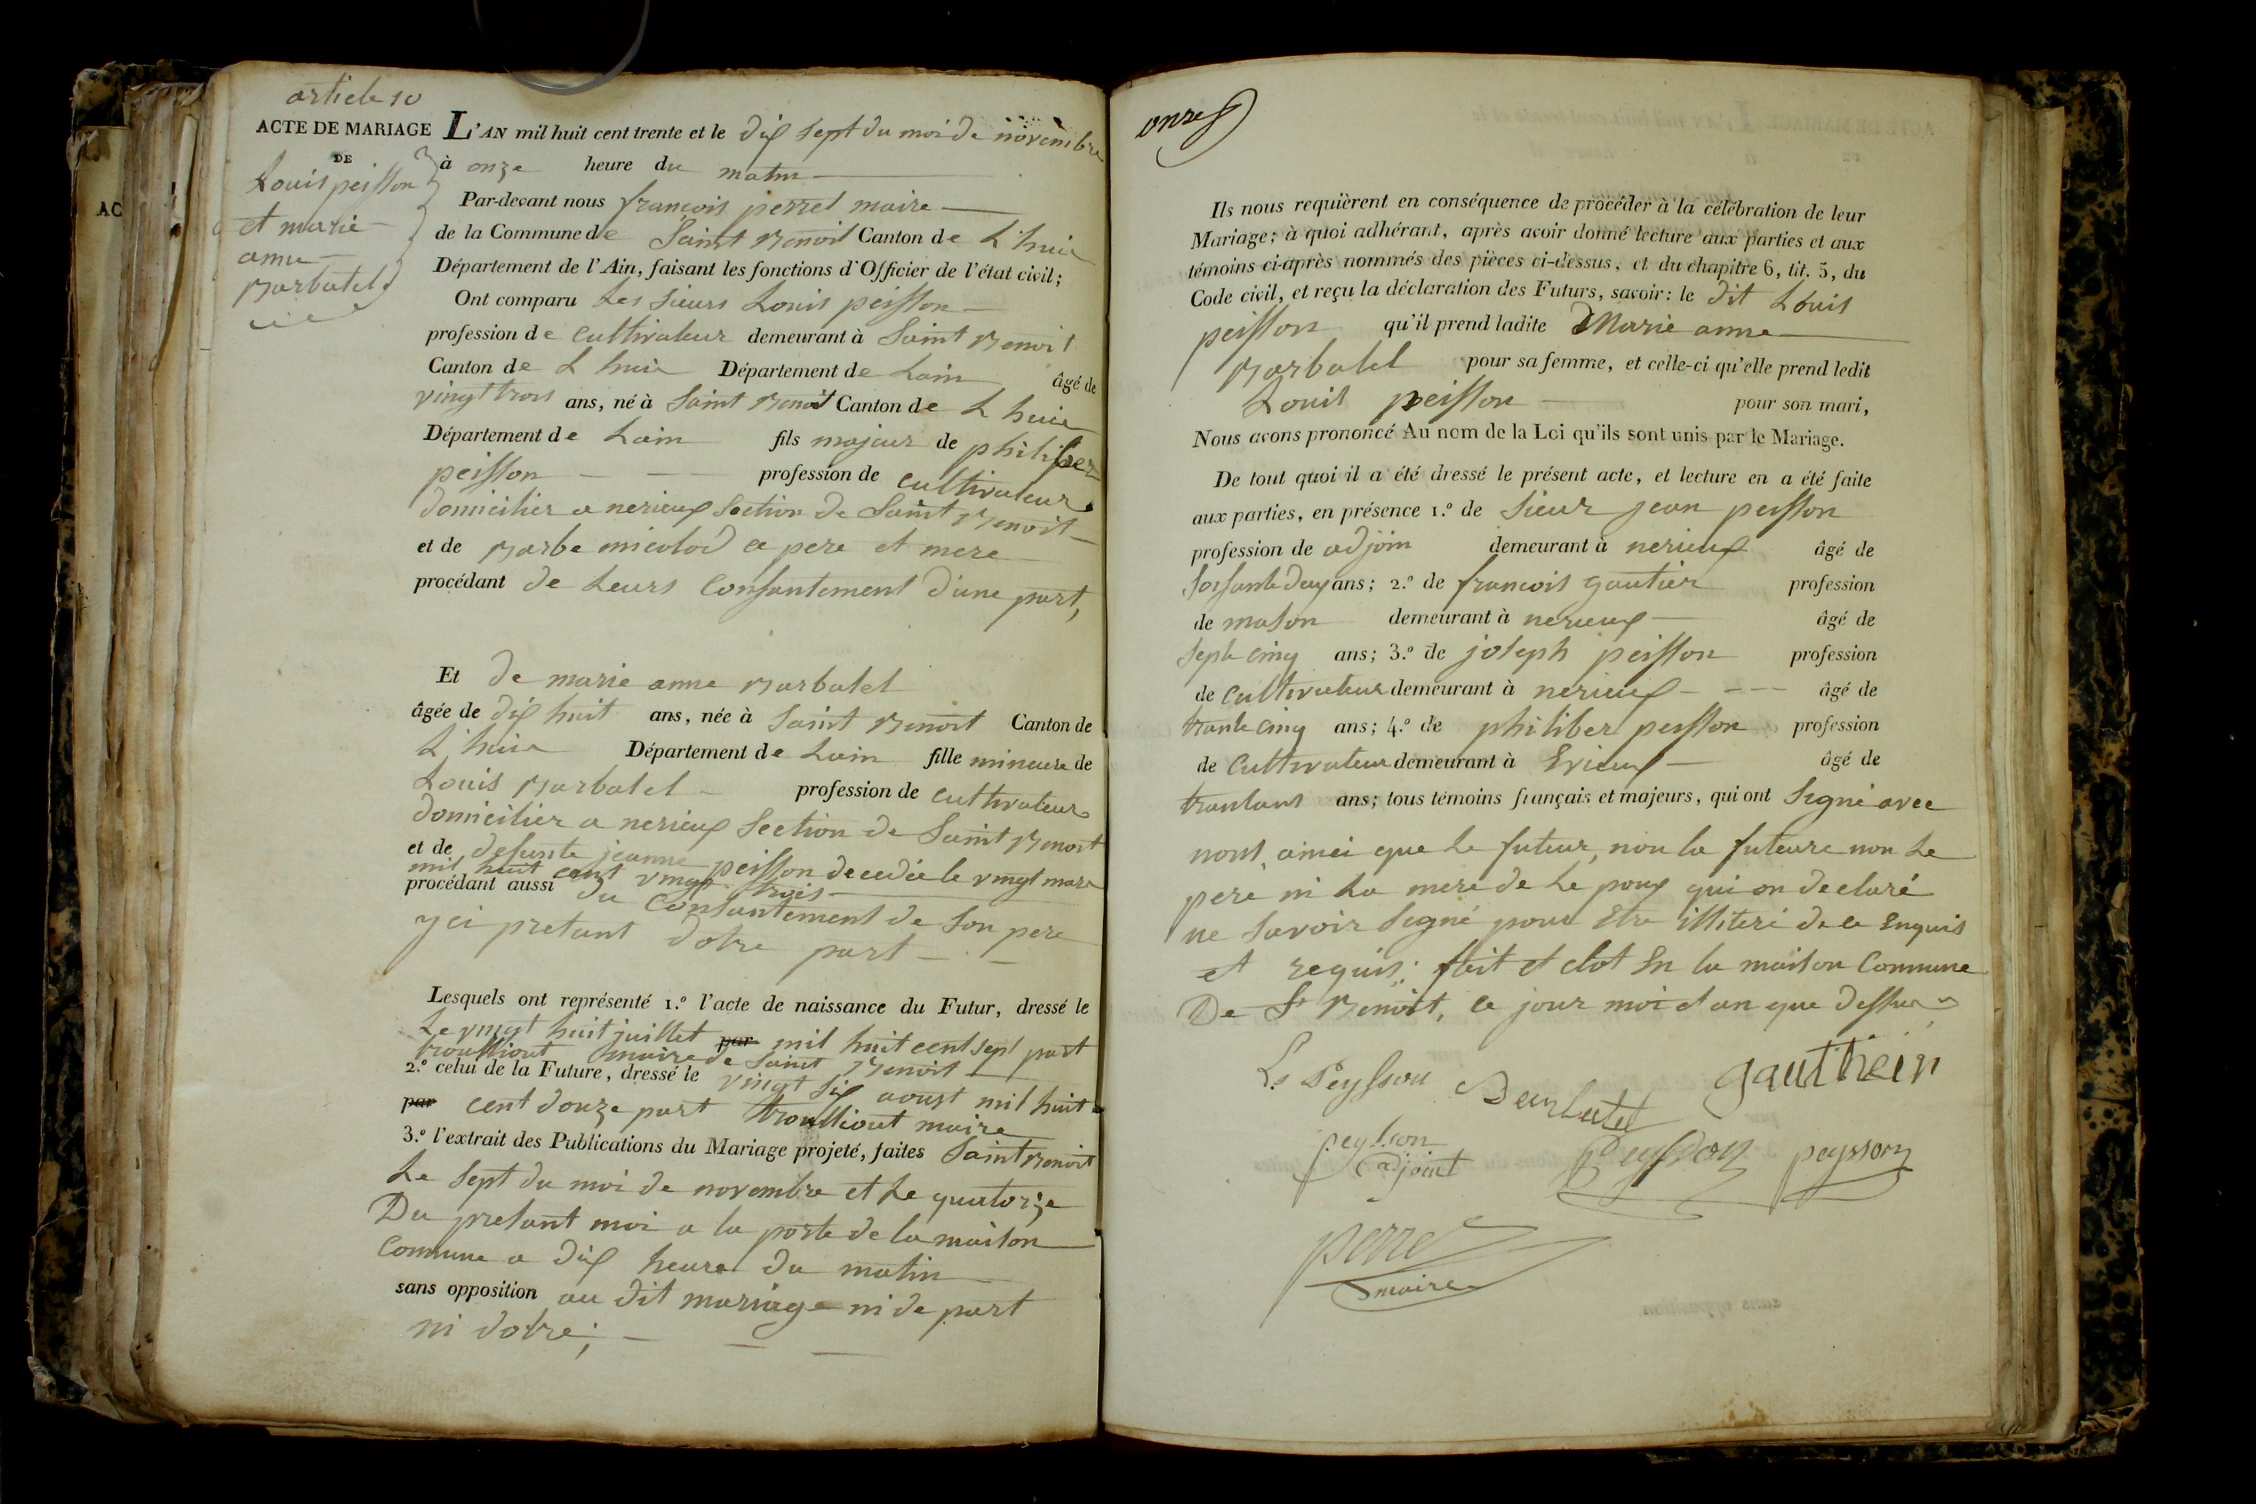 article 10
ACTE DE MARIAGE
DE
Louis peisson
et marie
anne
Barbatel
L'AN mil huit cent trente et le dix sept du moi de novembre
à onze heure du matin
Par-devant nous françois perret maire
de la Commune de Saint Benoit Canton de L'huis
Département de l'Ain, faisant les fonctions d'Officier de l'état civil;
Ont comparu Les Sieurs Louis peisson
profession de cultivateur demeurant à Saint Benoit
Canton de L huis Département de Lain âgé de
vingt trois ans, né à Saint Benoit Canton de L huis
Département de Lain fils majeur de philiber
peisson profession de cultivateur
domicilier a nerieux Section de Saint Benoit
et de Barbe micolod ce pere et mere
procédant de Leurs Consantement d'une part,
Et de marie anne Barbatel
âgée de dix huit ans, née à Saint Benoit Canton de
L'huis Département de Lain fille mineure de
Louis Barbatel profession de cultivateur
domicilier a nerieux Section de Saint Benoit
et de defunte jeanne peisson decedée le vingt mars
mil huit cent vingt trois
procédant aussi du Consantement de Son pere
yci pretant dotre part
Lesquels ont représenté 1.º l'acte de naissance du Futur, dressé le
Le vingt huit juillet par mil huit cent sept part
trouilliout maire de Saint Benoit
2.º celui de la Future, dressé le vingt Six aoust mil huit
par cent douze part trouilliout maire
3.º l'extrait des Publications du Mariage projeté, faites Saint Benoit
Le Sept du moi de novembre et Le quatorze
Du presant moi a la porte de la maison
Commune a dix heure du matin
sans opposition au dit mariage ni de part
ni dotre;
onze
Ils nous requièrent en conséquence de procéder à la célébration de leur
Mariage; à quoi adhérant, après avoir donné lecture aux parties et aux
témoins ci-après nommés des pièces ci-dessus, et du chapitre 6, tit. 5, du
Code civil, et reçu la déclaration des Futurs, savoir: le dit Louis
peisson qu'il prend ladite Marie anne
Barbatel pour sa femme, et celle-ci qu'elle prend ledit
Louis peisson pour son mari,
Nous avons prononcé Au nom de la Loi qu'ils sont unis par le Mariage.
De tout quoi il a été dressé le présent acte, et lecture en a été faite
aux parties, en présence 1.º de Sieur jean peisson
profession de adjoin demeurant à nerieux âgé de
soisante deux ans; 2.º de francois gautier profession
de mason demeurant à nerieux âgé de
septe cinq ans; 3.º de joseph peisson profession
de cultivateur demeurant à nerieux âgé de
trante cinq ans; 4.º de philiber peisson profession
de Cultivateur demeurant à Erieux âgé de
trantans ans; tous témoins français et majeurs, qui ont Signé avec
nous, ainci que Le futeur, non la futeure non Le
pere ni La mere de Le poux qui on declaré
ne Savoir Signé pour Etre illiteré de ce Enquis
et requis; fait et clot En la maison Commune
De St Benoit, ce jour moi et an que dessus
Ls Peysson Barbatel gautheir
peysson adjoint Peysson peysson
perret
maire